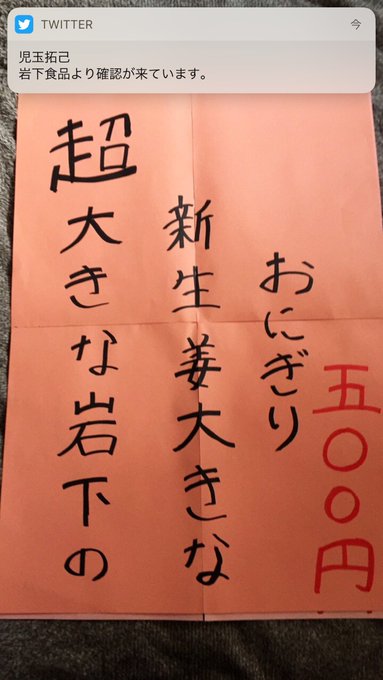 TWITTER
今
児玉拓己
岩下食品より確認が来ています。
超大きな岩下の
新生姜大きな
おにぎり
五〇〇円